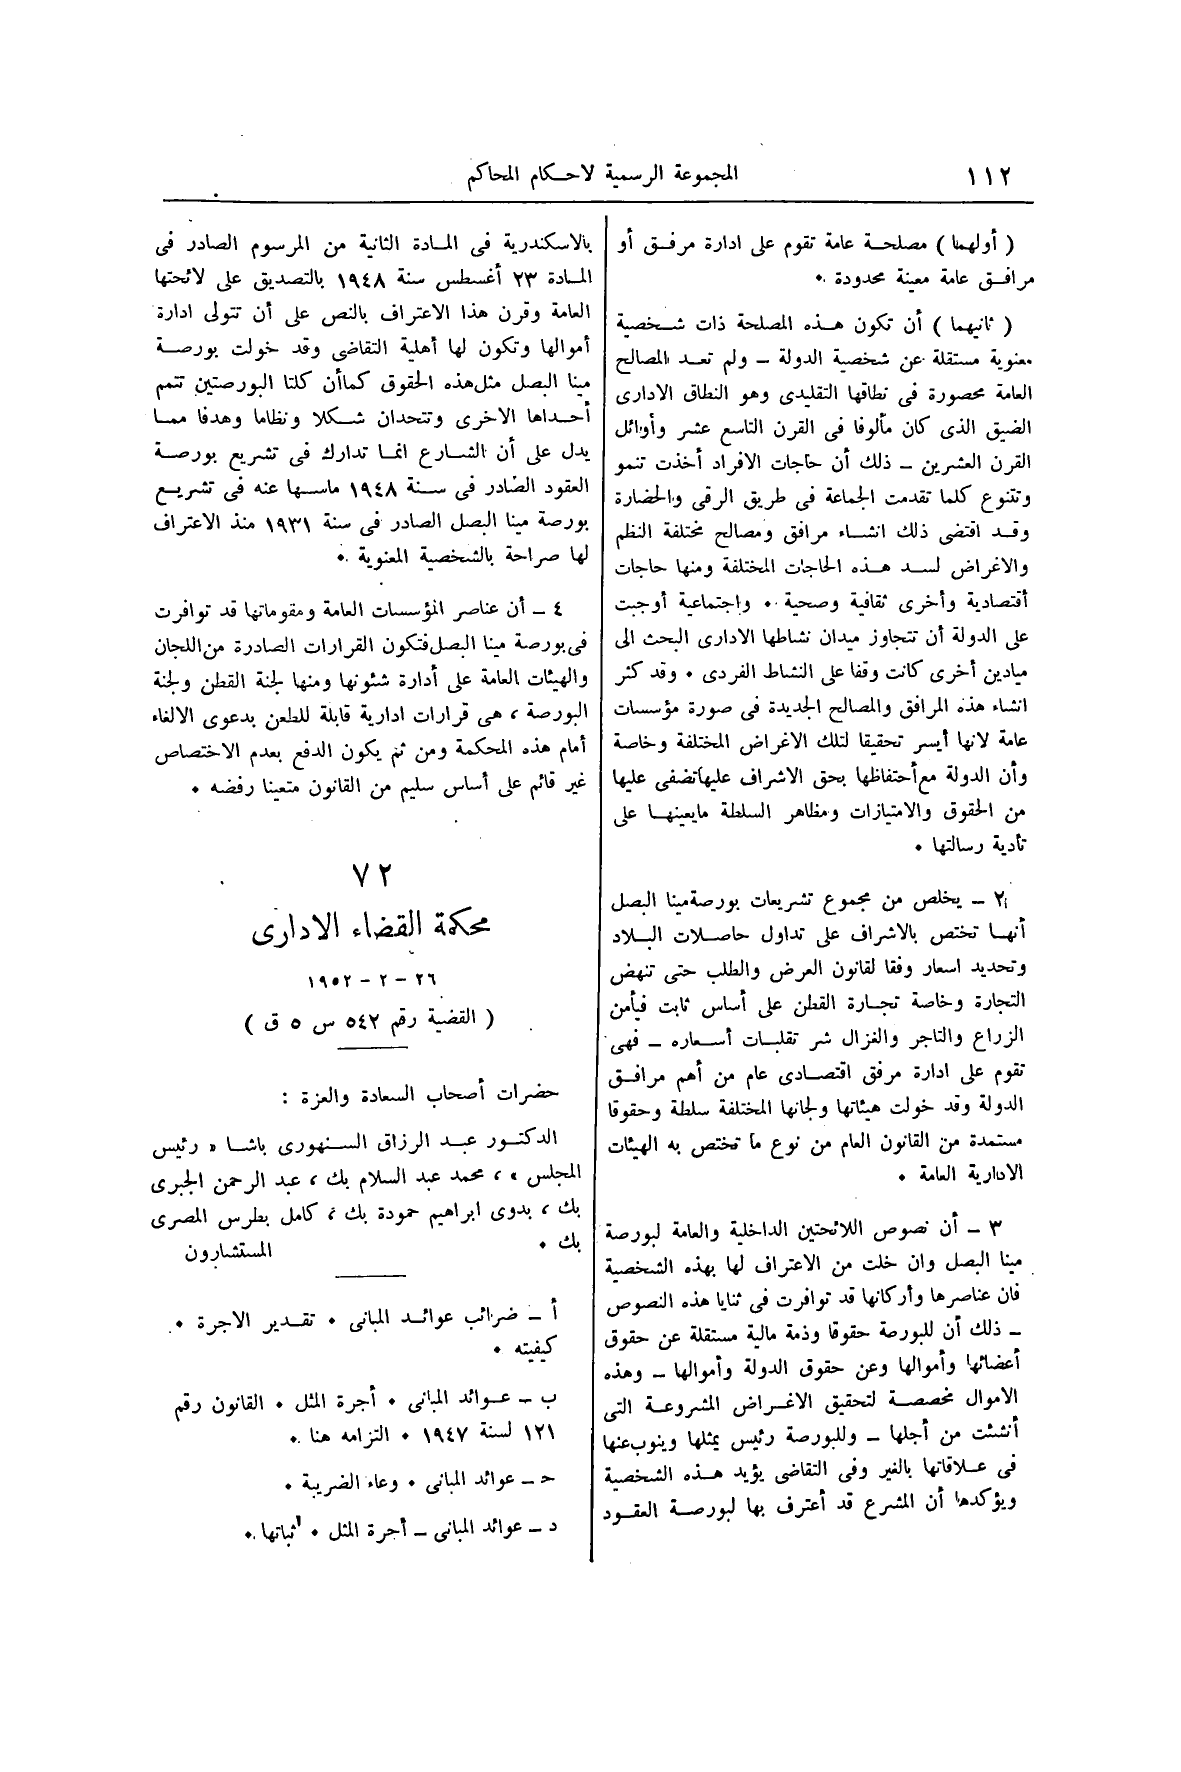 ١١٢
المجموعة الرسمية لاحكام المحاكم
( أولهما ) مصلحة عامة تقوم على ادارة مرفق أو
مرافق عامة معينة محدودة .
( ثانيهما ) أن تكون هذه المصلحة ذات شخصية
معنوية مستقلة عن شخصية الدولة ـ ولم تعد المصالح
العامة محصورة فى نطاقها التقليدى وهو النطاق الادارى
الضيق الذى كان مألوفا فى القرن التاسع عشر وأوائل
القرن العشرين ـ ذلك أن حاجات الافراد أخذت تنمو
وتتنوع كلما تقدمت الجماعة فى طريق الرقى والحضارة
وقد اقتضى ذلك انشاء مرافق ومصالح مختلفة النظم
والاغراض لسد هذه الحاجات المختلفة ومنها حاجات
أقتصادية وأخرى ثقافية وصحية . واجتماعية أوجبت
على الدولة أن تتجاوز ميدان نشاطها الادارى البحث الى
ميادين أخرى كانت وقفا على النشاط الفردى . وقد كثر
انشاء هذه المرافق والمصالح الجديدة فى صورة مؤسسات
عامة لانها أيسر تحقيقا لتلك الاغراض المختلفة وخاصة
وأن الدولة مع أحتفاظها بحق الاشراف عليها تضفى عليها
من الحقوق والامتيازات ومظاهر السلطة مايعينها على
تأدية رسالتها .
٢ ـ يخلص من مجموع تشريعات بورصة مينا البصل
أنها تختص بالاشراف على تداول حاصلات البلاد
وتحديد اسعار وفقا لقانون العرض والطلب حتى تنهض
التجارة وخاصة تجارة القطن على أساس ثابت فيأمن
الزراع والتاجر والغزال شر تقلبات أسعاره ـ فهى
تقوم على ادارة مرفق اقتصادى عام من أهم مرافق
الدولة وقد خولت هيئاتها ولجانها المختلفة سلطة وحقوقا
مستمدة من القانون العام من نوع ما تختص به الهيئات
الادارية العامة .
٣ ـ أن نصوص اللائحتين الداخلية والعامة لبورصة
مينا البصل وان خلت من الاعتراف لها بهذه الشخصية
فان عناصرها وأركانها قد توافرت فى ثنايا هذه النصوص
ـ ذلك أن للبورصة حقوقا وذمة مالية مستقلة عن حقوق
أعضائها وأموالها وعن حقوق الدولة وأموالها ـ وهذه
الاموال مخصصة لتحقيق الاغراض المشروعة التى
أنشئت من أجلها ـ وللبورصة رئيس يمثلها وينوب عنها
فى علاقاتها بالغير وفى التقاضى يؤيد هذه الشخصية
ويؤكدها أن المشرع قد أعترف بها لبورصة العقود
بالاسكندرية فى المادة الثانية من المرسوم الصادر فى
المادة ٢٣ أغسطس سنة ١٩٤٨ بالتصديق على لائحتها
العامة وقرن هذا الاعتراف بالنص على أن تتولى ادارة
أموالها وتكون لها أهلية التقاضى وقد خولت بورصة
مينا البصل مثل هذه الحقوق كما أن كلتا البورصتين تتمم
أحداها الاخرى وتتحدان شكلا ونظاما وهدفا مما
يدل على أن الشارع انما تدارك فى تشريع بورصة
العقود الصادر فى سنة ١٩٤٨ ماسها عنه فى تشريع
بورصة مينا البصل الصادر فى سنة ١٩٣١ منذ الاعتراف
لها صراحة بالشخصية المعنوية .
٤ ـ أن عناصر المؤسسات العامة ومقوماتها قد توافرت
فى بورصة مينا البصل فتكون القرارات الصادرة من اللجان
والهيئات العامة على أدارة شئونها ومنها لجنة القطن ولجنة
البورصة ، هى قرارات ادارية قابلة للطعن بدعوى الالغاء
أمام هذه المحكمة ومن ثم يكون الدفع بعدم الاختصاص
غير قائم على أساس سليم من القانون متعينا رفضه .
٧٢
محكمة القضاء الادارى
٢٦ - ٢ - ١٩٥٢
( القضية رقم ٥٤٢ س ٥ ق )
حضرات أصحاب السعادة والعزة :
الدكتور عبد الرزاق السنهورى باشا « رئيس
المجلس » ، محمد عبد السلام بك ، عبد الرحمن الجبرى
بك ، بدوى ابراهيم حمودة بك ، كامل بطرس المصرى
بك . المستشارون
أ ـ ضرائب عوائد المبانى . تقدير الاجرة .
كيفيته .
ب ـ عوائد المبانى . أجرة المثل . القانون رقم
١٢١ لسنة ١٩٤٧ . التزامه هنا .
حـ ـ عوائد المبانى . وعاء الضريبة .
د ـ عوائد المبانى ـ أجرة المثل . اثباتها .